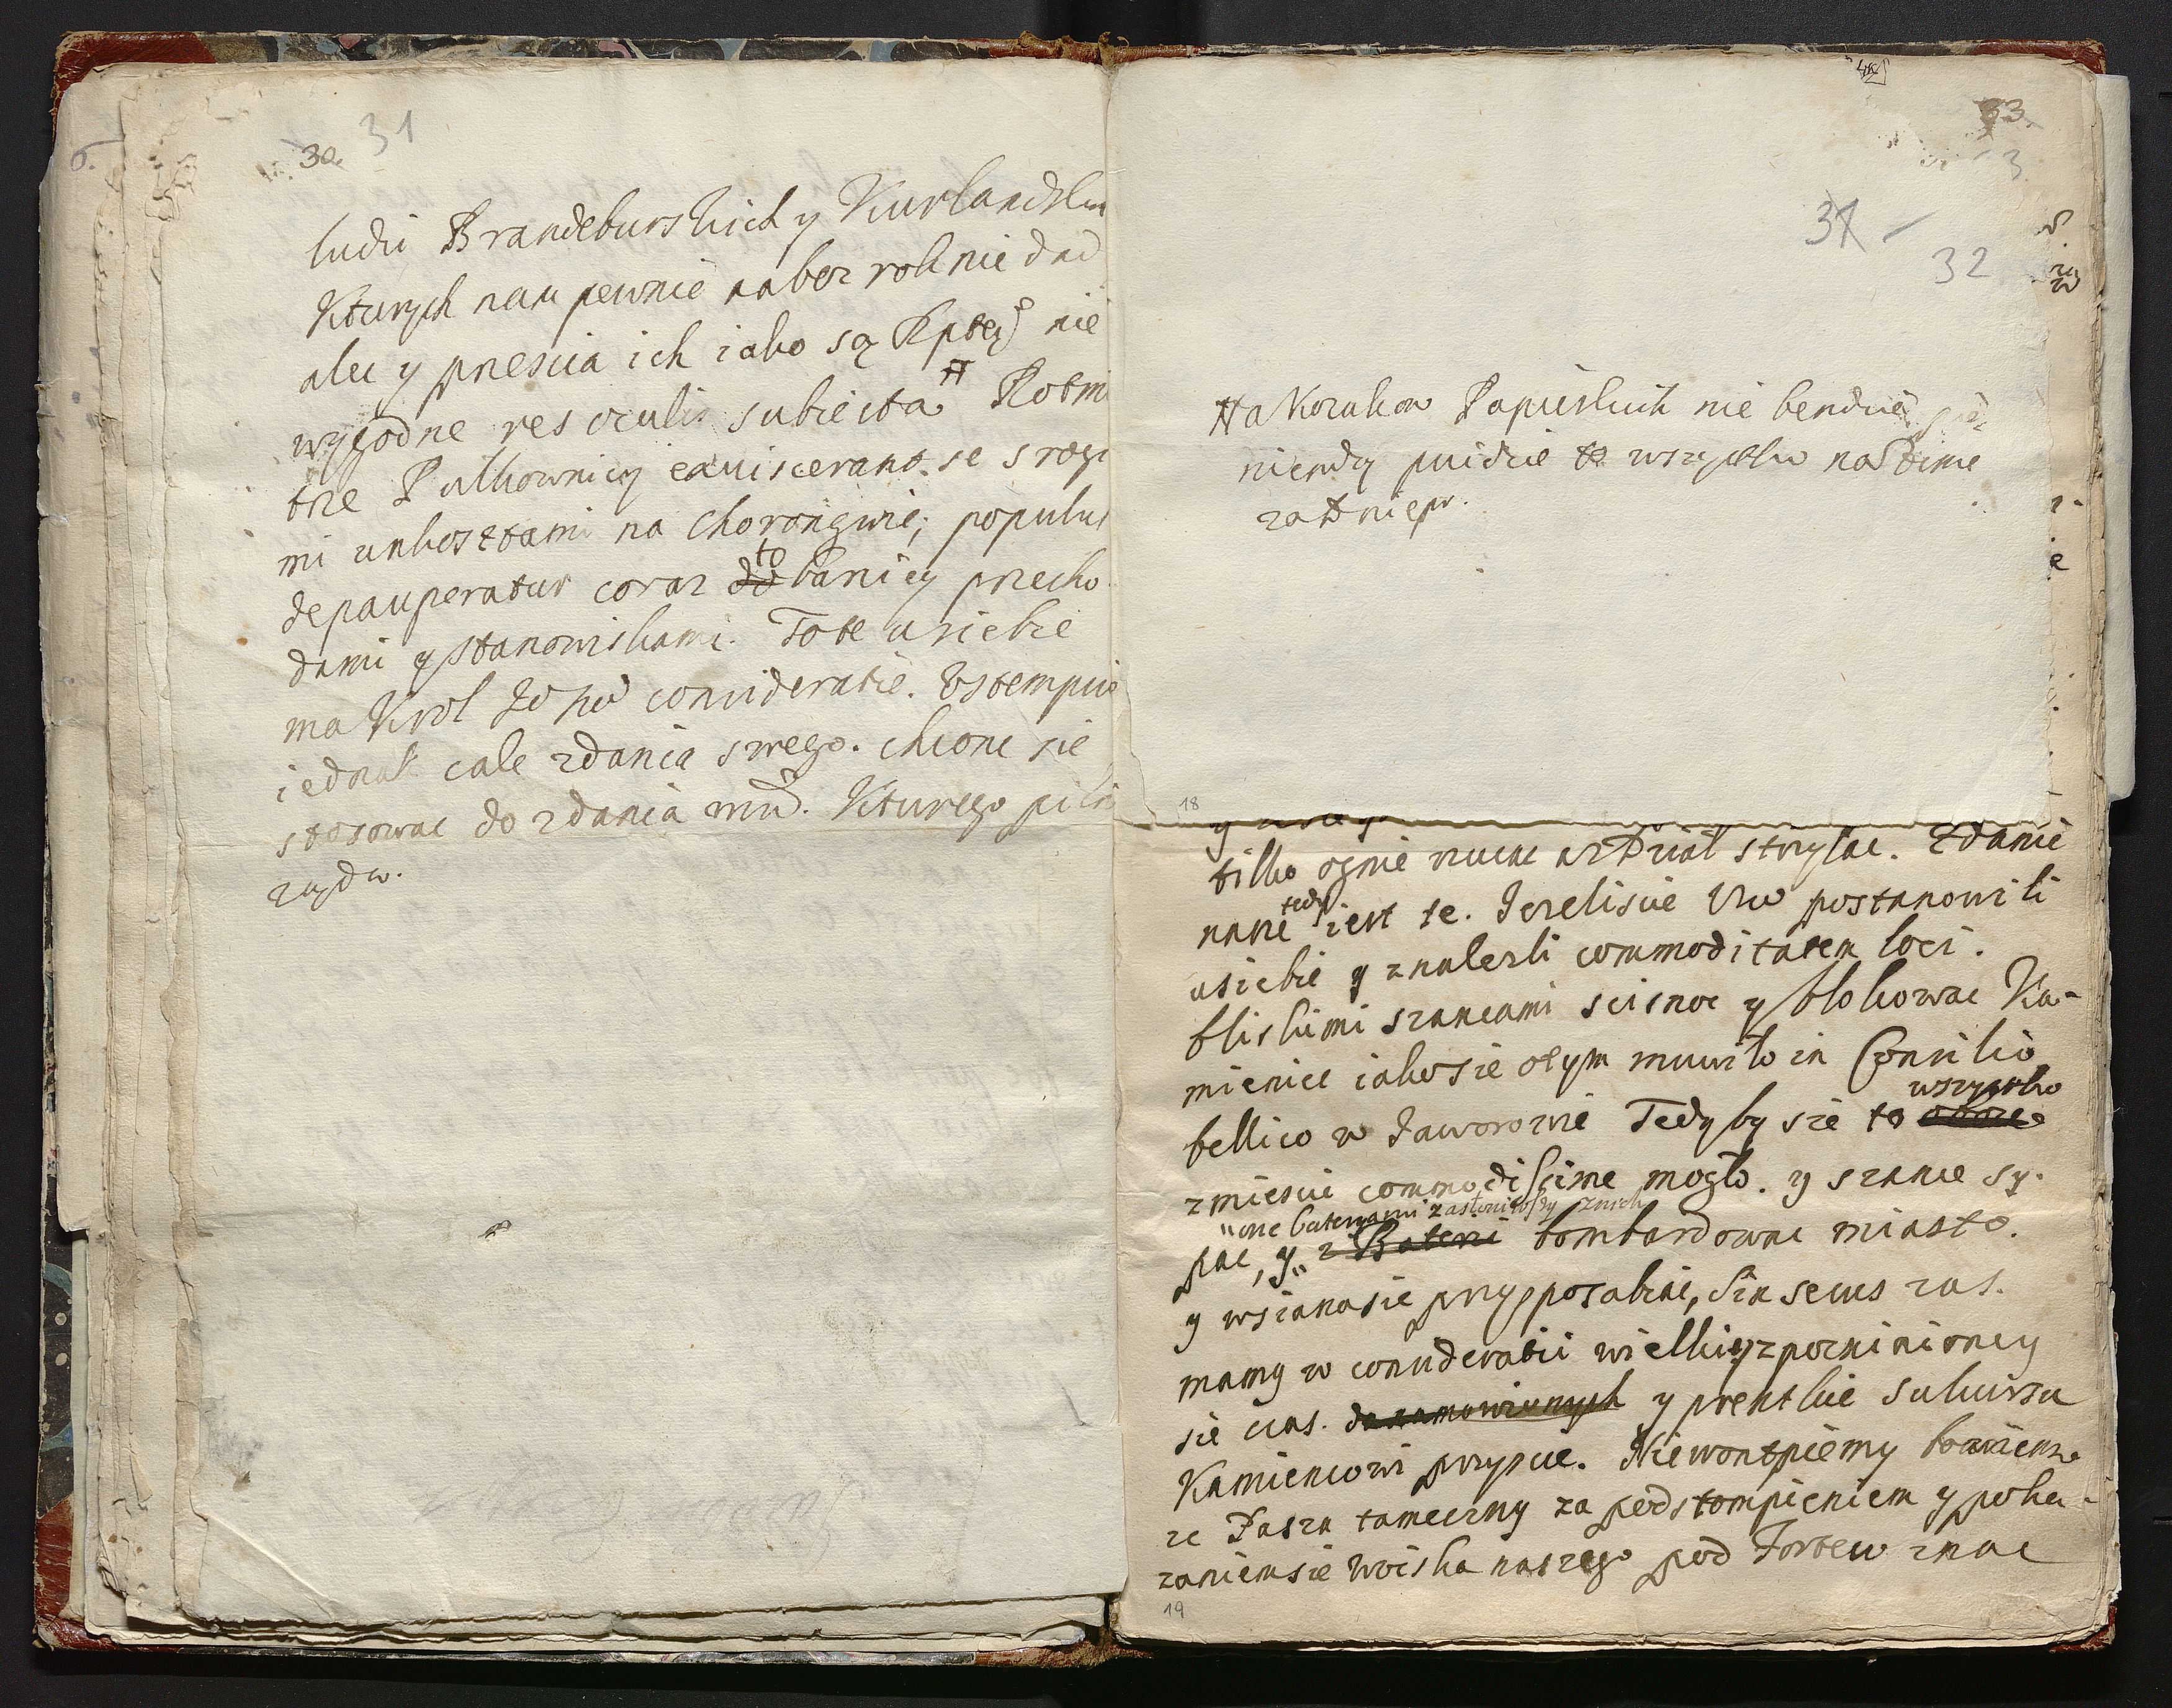 30. 31
ludzi Brandeburskich y Kurlandzki
Kturych nam pewnie nabor rok nie dad
alec y przescia ich iako są Rptcy nie
wygodne res oculis subiecta # Rotmi
trze Pulkownicy exuiscerant se srogi
mi unkosztami na Chorongwie; populus
depauperatur coraz to bariey przecho
dami y stanowiskami. To te u siebie
ma Krol Je consideratie. Ustempuie
iednak cale zdania swego. chcone sie
stosowac do zdania wm. Kturego piln
zayda.
33
3
31
32
# a Kozakow Papieskich nie bendzie
niendzy puidzie to wszystko nastime
za Dniepr.
18
tilko ognie rucac az Dział strylac. Zdanie
nasze tedy iest te. Jezeliscie Uw postanowili
usiebie y znalezli commoditatem loci.
bliskimi szancami scisnoc y blokowac Ka-
mieniec iako sie otym muwiło in Consilio
bellico w Jaworowie Tedy by sie to wszystko
zmiescic commodissime mogło. y szance sy-
pac, y one bateryami zasłoniwszy znich bombardowac miasto.
y wsianasie przysposabiac, Sin secus zas.
mamy w consideratii wielkiey zpoznioney
sie czas. y prentkie sukursu
Kamiencowi przyscie. Niewontpiemy bowiem
ze Pasza tameczny za podstompieniem y poka-
zaniemsie woiska naszego pod Fortew znac
19